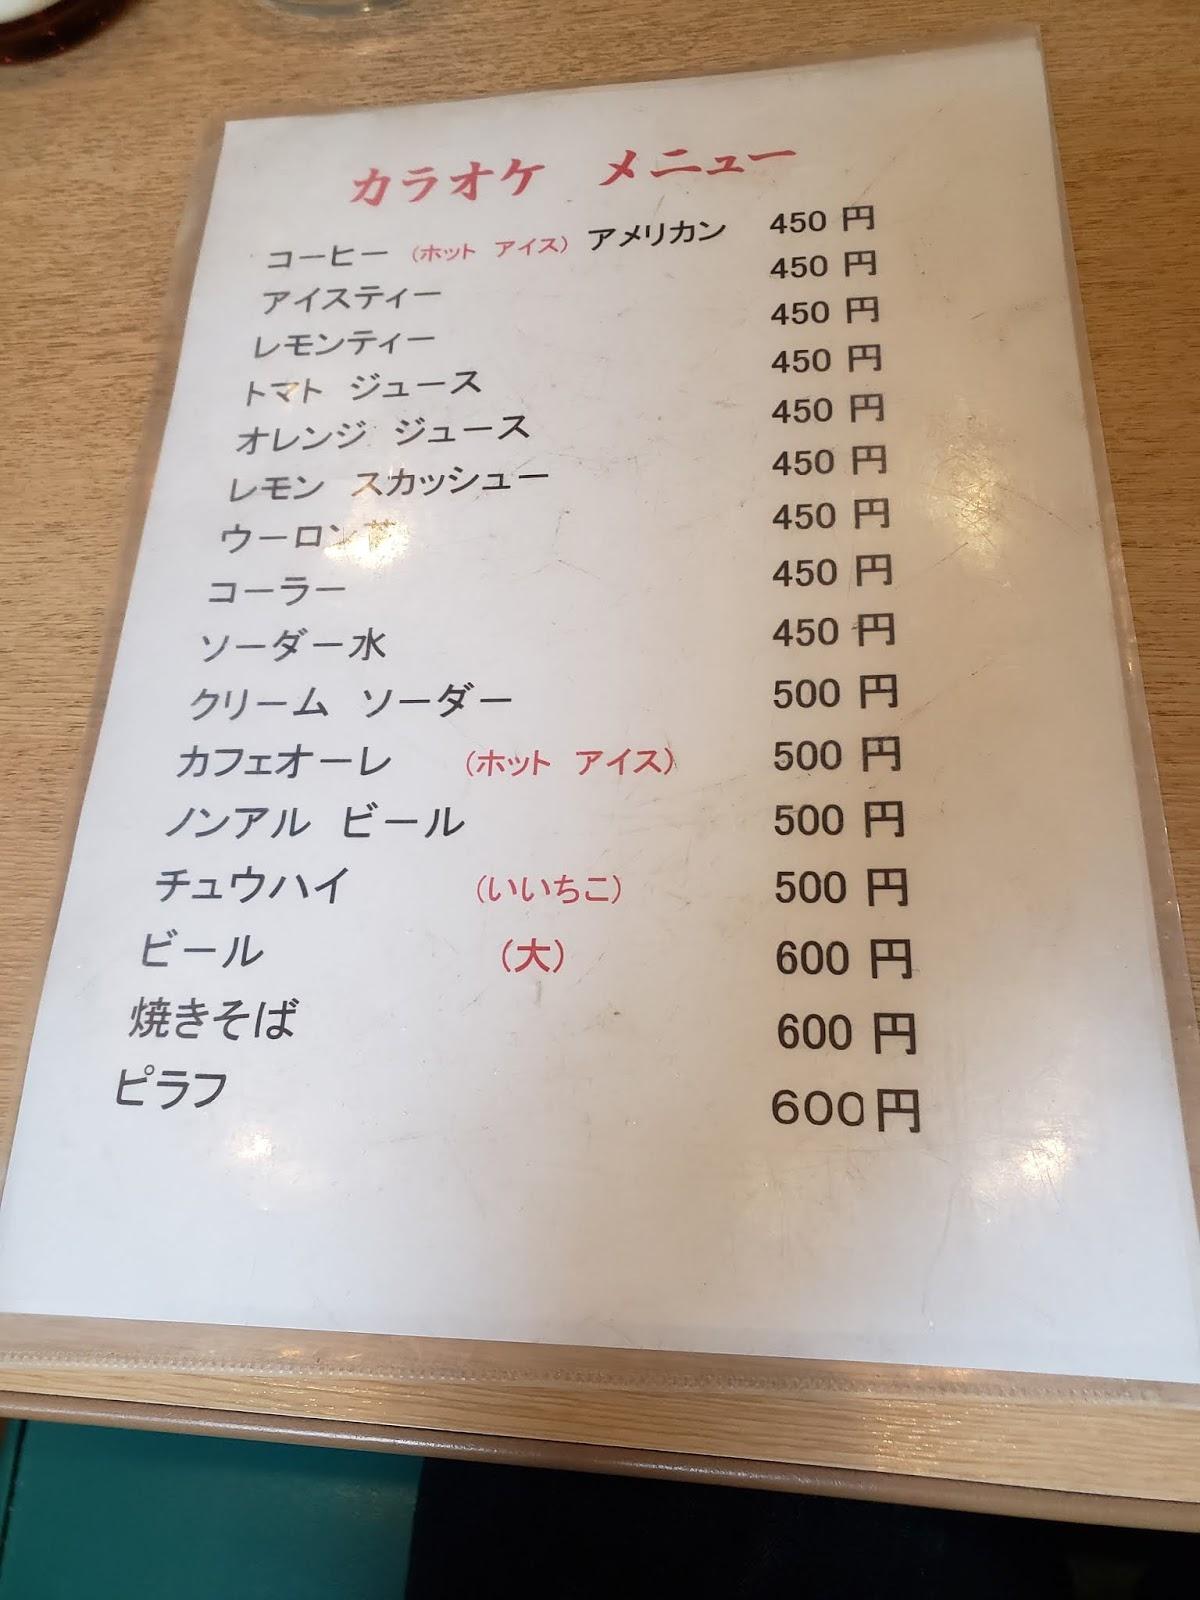 カラオケ メニュー
コーヒー (ホット アイス) アメリカン 450 円
アイスティー 450 円
レモンティー 450 円
トマト ジュース 450 円
オレンジ ジュース 450 円
レモン スカッシュー 450 円
ウーロン茶 450 円
コーラー 450 円
ソーダー水 450 円
クリーム ソーダー 500 円
カフェオーレ (ホット アイス) 500 円
ノンアル ビール 500 円
チュウハイ (いいちこ) 500 円
ビール (大) 600 円
焼きそば 600 円
ピラフ 600円